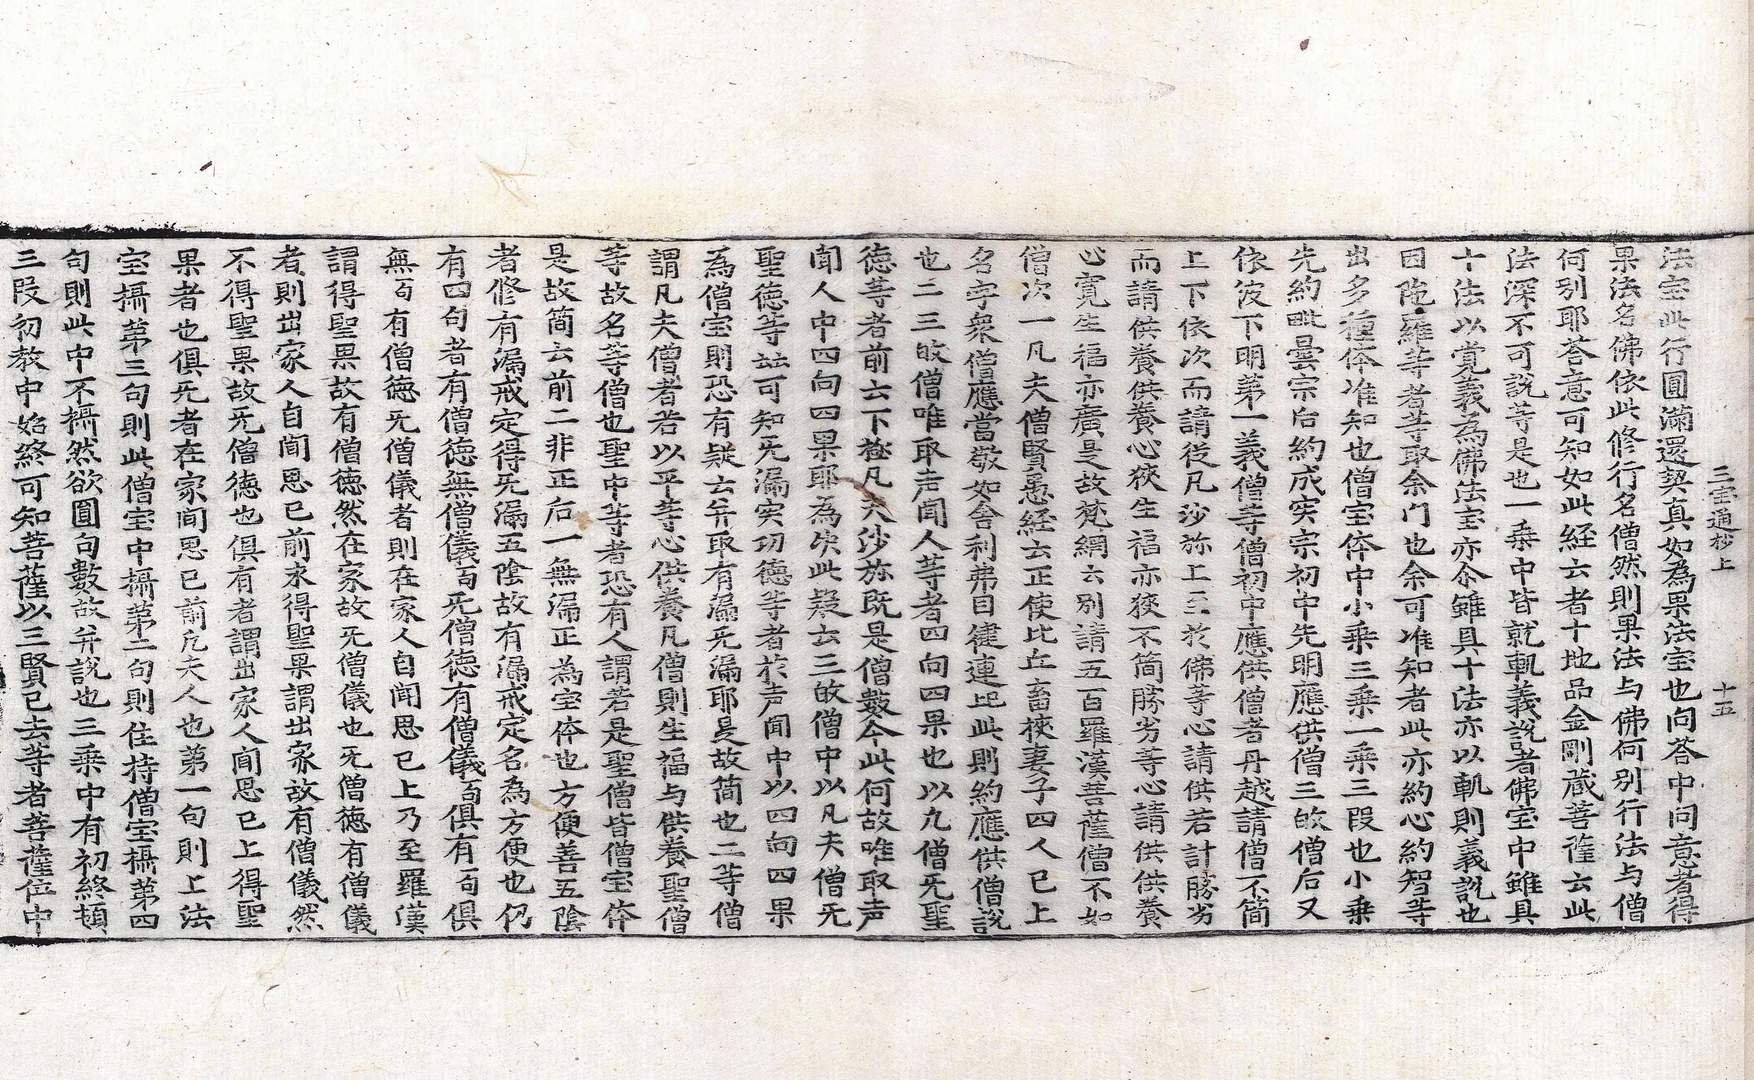 三宝通抄上　十五
法宝此行圓滿還契真如為果法宝也向荅中问意者得
果法名佛依此修行名僧然則果法与佛何别行法与僧
何别耶荅意可知如此経云者十地品金剛蔵菩薩云此
法深不可説等是也一乗中皆就軌義説者佛宝中雖具
十法以覚義為佛法宝亦尒雖具十法亦以軌則義説也
因陁羅等者等取余门也余可准知者此亦約心約智等
出多種体准知也僧宝体中小乗三乗一乗三叚也小乗
先約毗曇宗后約成实宗初中先明應供僧三故僧后又
依彼下明第一義僧等僧初中應供僧者丹越請僧不简
上下依次而請従凡沙弥上至於佛等心請供若計勝劣
而請供養供養心狹生福亦狹不简勝劣等心請供供養
心寛生福亦廣是故梵網云别請五百羅漢菩薩僧不如
僧次一凡夫僧賢愚経云正使比丘畜挾妻子四人已上
名字衆僧應當敬如舍利弗目揵連此則約應供僧説
也二三故僧唯取声闻人等者四向四果也以九僧旡聖
徳等者前云下至凡夫沙弥既是僧數今此何故唯取声
闻人中四向四果耶為决此疑云三故僧中以凡夫僧旡
聖徳等竝可知旡漏实功徳等者於声闻中以四向四果
為僧宝則恐有疑云并取有漏旡漏耶是故简也二等僧
謂凡夫僧者若以平等心供養凡僧則生福与供養聖僧
等故名等僧也聖中等者恐有人謂若是聖僧皆僧宝体
是故简云前二非正后一無漏正為宝体也方便善五陰
者修有漏戒定得旡漏五陰故有漏戒定名為方便也仍
有四句者有僧徳無僧儀句旡僧徳有僧儀句俱有句俱
無句有僧徳旡僧儀者則在家人自闻思已上乃至羅漢
謂得聖果故有僧徳然在家故旡僧儀也旡僧徳有僧儀
者則出家人自闻思已前未得聖果謂出家故有僧儀然
不得聖果故旡僧徳也俱有者謂出家人闻思已上得聖
果者也俱旡者在家闻思已前凡夫人也第一句則上法
宝攝第三句則此僧宝中攝第二句則住持僧宝攝第四
句則此中不攝然欲圓句數故并説也三乗中有初終頓
三叚初教中始終可知菩薩以三賢已去等者菩薩位中